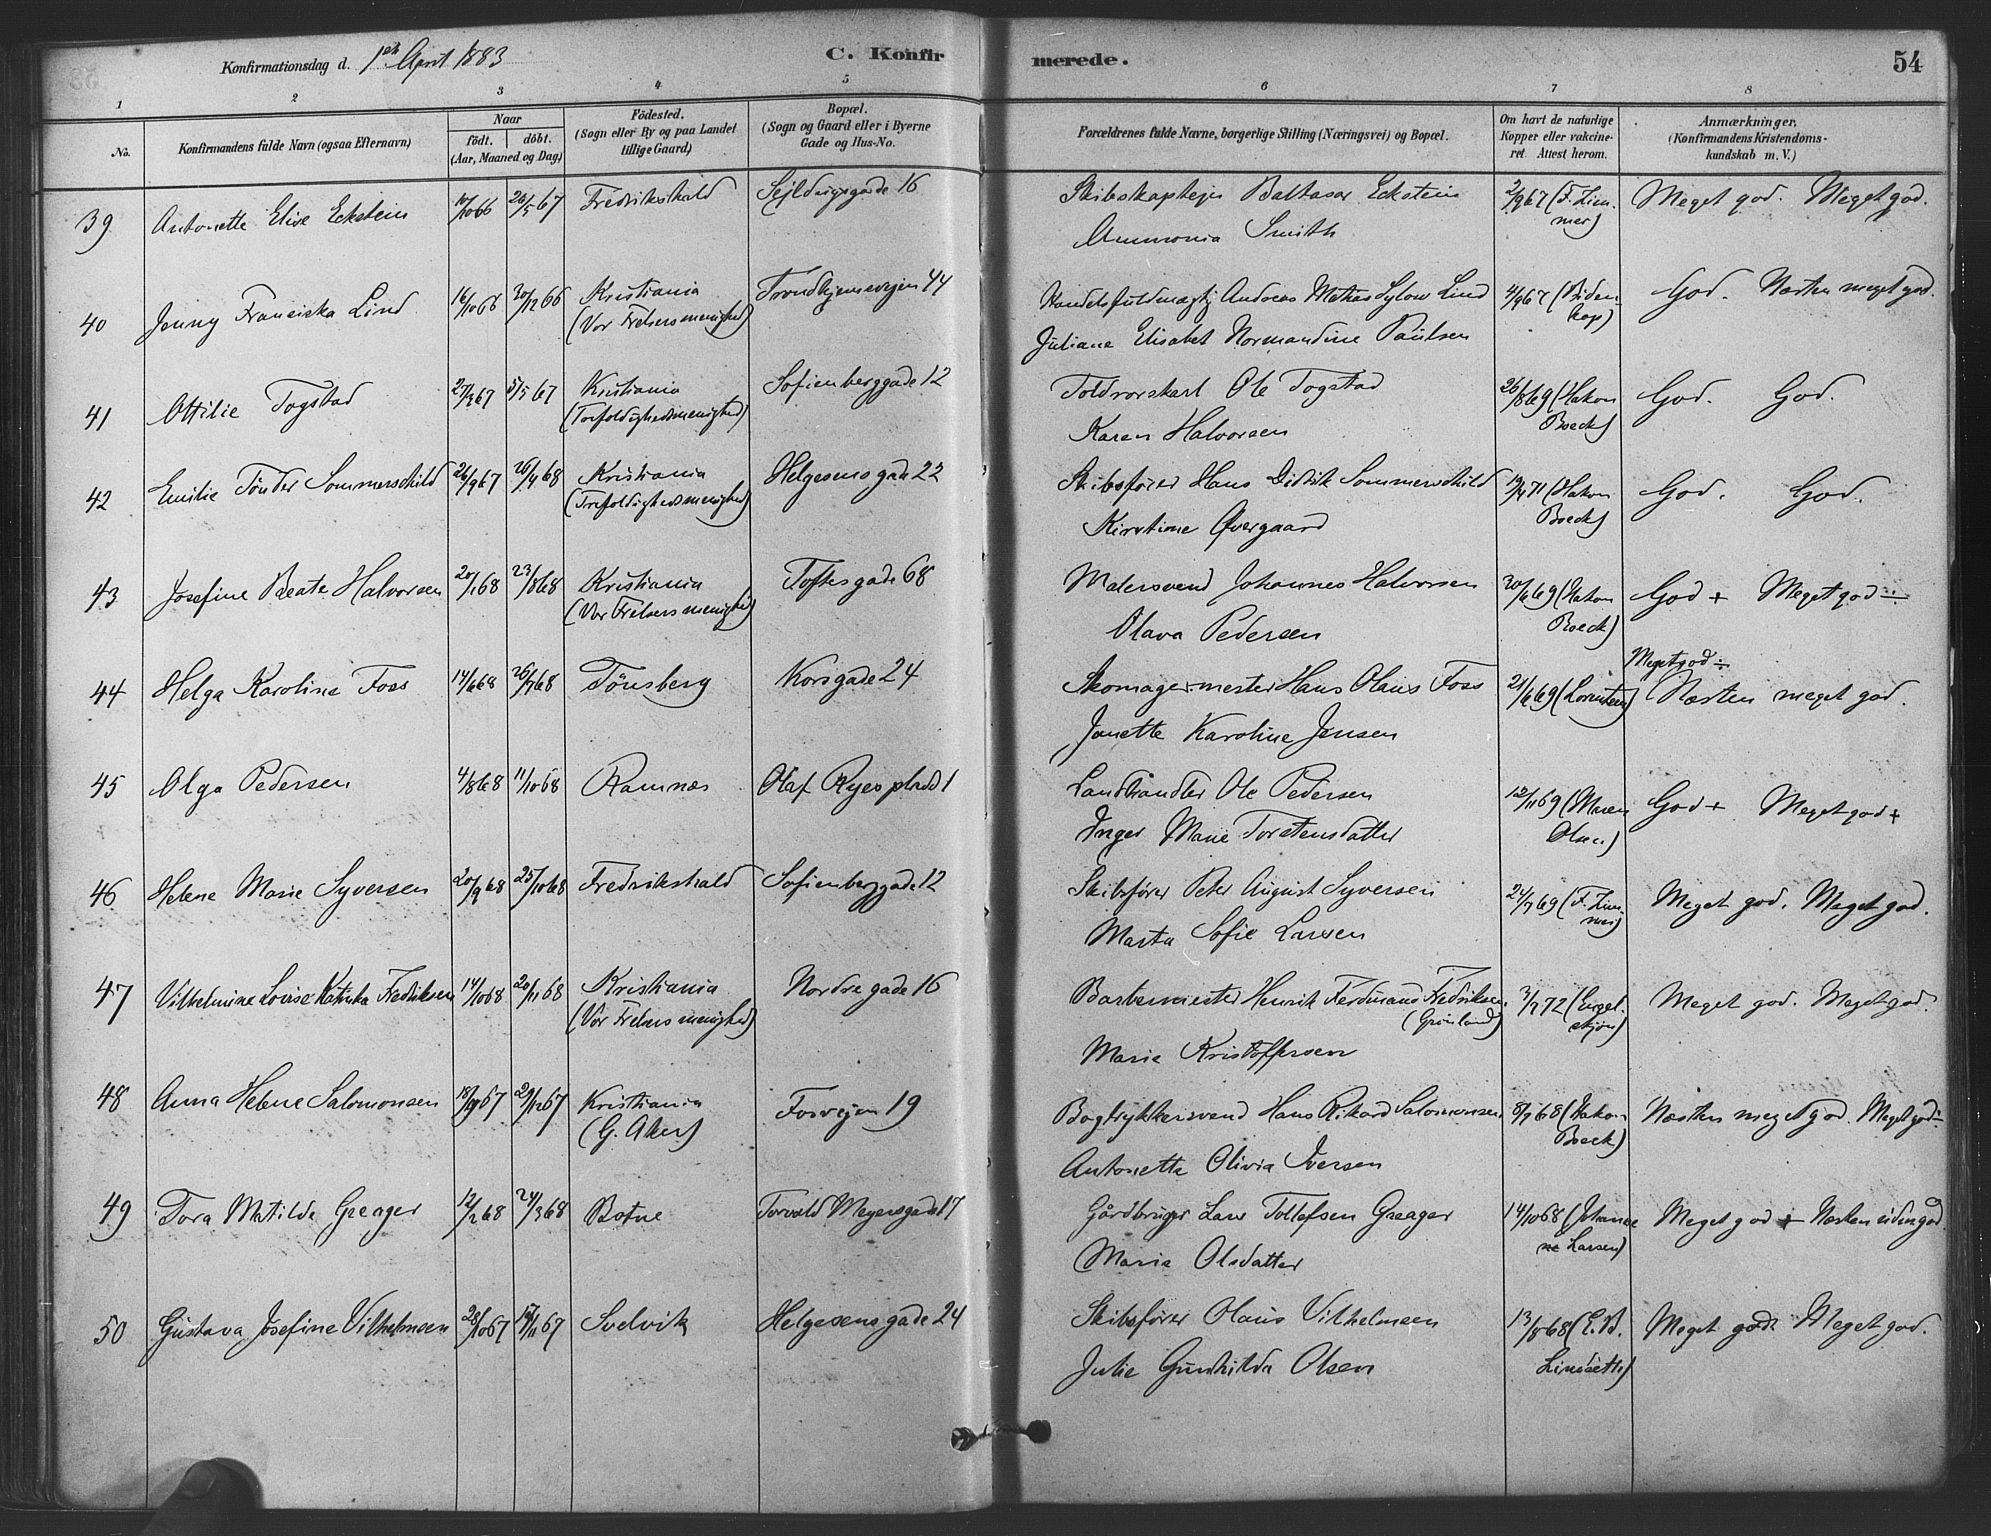 Konfirmationsdag d. 1ste April 1883
C. Konfirmerede.
54
1 2 3 4 5 6 7 8
No.
Konfirmandens fulde Navn (ogsaa Efternavn)
Naar
födt. döbt.
(Aar, Maaned og Dag)
Födested.
(Sogn eller By og paa Landet
tillige Gaard)
Bopæl.
(Sogn og Gaard eller i Byerne
Gade og Hus-No.
Forældrenes fulde Navne, borgerlige Stilling (Næringsvei) og Bopæl.
Om havt de naturlige
Kopper eller vakcine-
ret Attest herom.
Anmærkninger.
(Konfirmandens Kristendoms-
kundskab m. V.)
39 Antonette Elise Eckstein 10/10 66 26/5 67 Fredrikshald Sejldugsgade 16 Skibskaptejn Baltasar Eckstein 2/9 67 (F. Zim- Meget god. Meget god.
Ammonia Smith mer)
40 Jenny Franciska Lind 16/10 66 30/12 66 Kristiania Trondhjemsvejen 44 Handelsfuldmægtig Andreas Sylow Lind 4/9 67 (Biden- God. Næsten meget god.
(Vor Frelsers menighed) Juliane Elisabet Normandine Paulsen kap)
41 Ottilie Togstad 27/3 67 5/5 67 Kristiania Sofienberggade 12 Toldrorskarl Ole Togstad 26/8 69 (Hakon God. God.
(Trefoldighedsmenighed) Karen Halvorsen Boeck)
42 Emilie Tönder Sommerschild 26/9 67 26/4 68 Kristiania Helgesens gade 22 Skibsfører Hans Didrik Sommerschild 19/4 71 (Hakon God. God.
(Trefoldighedsmenighed) Kirstine Overgaard Boeck)
43 Josefine Beate Halvorsen 20/1 68 23/8 68 Kristiania Toftes gade 68 Malersvend Johannes Halvorsen 30/6 69 (Hakon God + Meget god ÷
(Vor Frelsers menighed) Olava Pedersen Boeck)
44 Helga Karoline Foss 14/6 68 26/7 68 Tönsberg Korsgade 24 Skomagermester Hans Olaus Foss 21/6 69 (Lorentzen) Meget god ÷ Næsten meget god.
Janette Karoline Jensen
45 Olga Pedersen 4/8 68 11/10 68 Ramnæs Olaf Ryes plads 1 Landhandler Ole Pedersen 12/11 69 (Maren God + Meget god +
Inger Marie Torstensdatter Olsen)
46 Helene Marie Syversen 20/9 68 25/10 68 Fredrikshald Sofienberggade 12 Skibsfører Peter August Syversen 24/7 69 (F. Zim- Meget god. Meget god.
Marta Sofie Larsen mer)
47 Vilhelmine Lovise Katinka Fredriksen 14/10 68 20/11 68 Kristiania Nordre gade 16 Barbermester Henrik Ferdinand Fredriksen 3/7 72 (Engel- Meget god. Meget god.
(Vor Frelsers menighed) (Grönland) skjön)
Marie Kristoffersen
48 Anna Helene Salomonsen 67 29/12 67 Kristiania Fosvejen 19 Bogtrykkersvend Hans Rikard Salomonsen 8/7 68 (Hakon Næsten meget god. Meget god ÷
(G. Aker) Antonette Olivia Iversen Boeck)
49 Tora Matilde Greager 12/2 68 24/3 68 Botne Torvald Meyersgade 17 Gårdbruger Lars Tollefsen Greager 14/10 68 (Johanne Meget god + Næsten
Marie Olsdatter Larsen)
50 Gustava Josefine Vilhelmsen 28/10 67 17/11 67 Svelvik Helgesens gade 24 Skibsfører Olaus Vilhelmsen 13/8 68 (E. B. Meget god. Meget god.
Julie Gunhilda Olsen Lindseth)